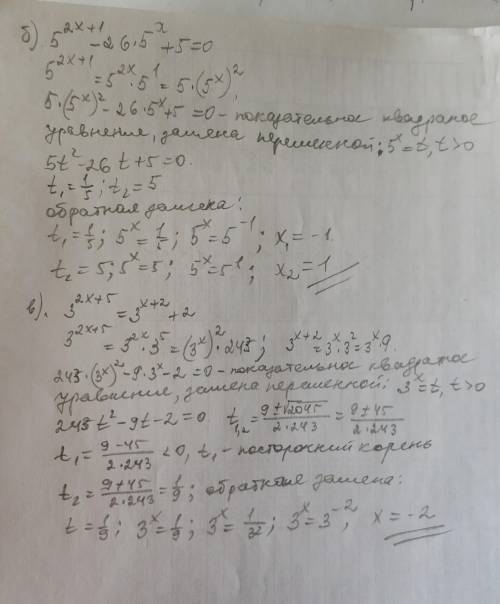 б) 5^{2x+1} - 26·5^x + 5 = 0
5^{2x+1} = 5^{2x}·5^1 = 5·(5^x)^2,
5·(5^x)^2 - 26·5^x + 5 = 0 - показательное квадратное
уравнение, замена переменной: 5^x = t, t>0
5t^2 - 26t + 5 = 0.
t_1 = 1/5; t_2 = 5
обратная замена:
t_1 = 1/5; 5^x = 1/5; 5^x = 5^{-1}; x_1 = -1
t_2 = 5; 5^x = 5; 5^x = 5^1; x_2 = 1
в). 3^{2x+5} = 3^{x+2} + 2
3^{2x+5} = 3^{2x}·3^5 = (3^x)^2·243; 3^{x+2} = 3^x·3^2 = 3^x·9.
243·(3^x)^2 - 9·3^x - 2 = 0 - показательное квадратное
уравнение, замена переменной: 3^x = t, t>0
243t^2 - 9t - 2 = 0. t_{1,2} = (9±√2045)/(2·243) = (9±45)/(2·243)
t_1 = (9-45)/(2·243) < 0, t_1 - посторонний корень
t_2 = (9+45)/(2·243) = 1/9; обратная замена:
t = 1/9; 3^x = 1/9; 3^x = 1/3^2; 3^x = 3^{-2}, x = -2